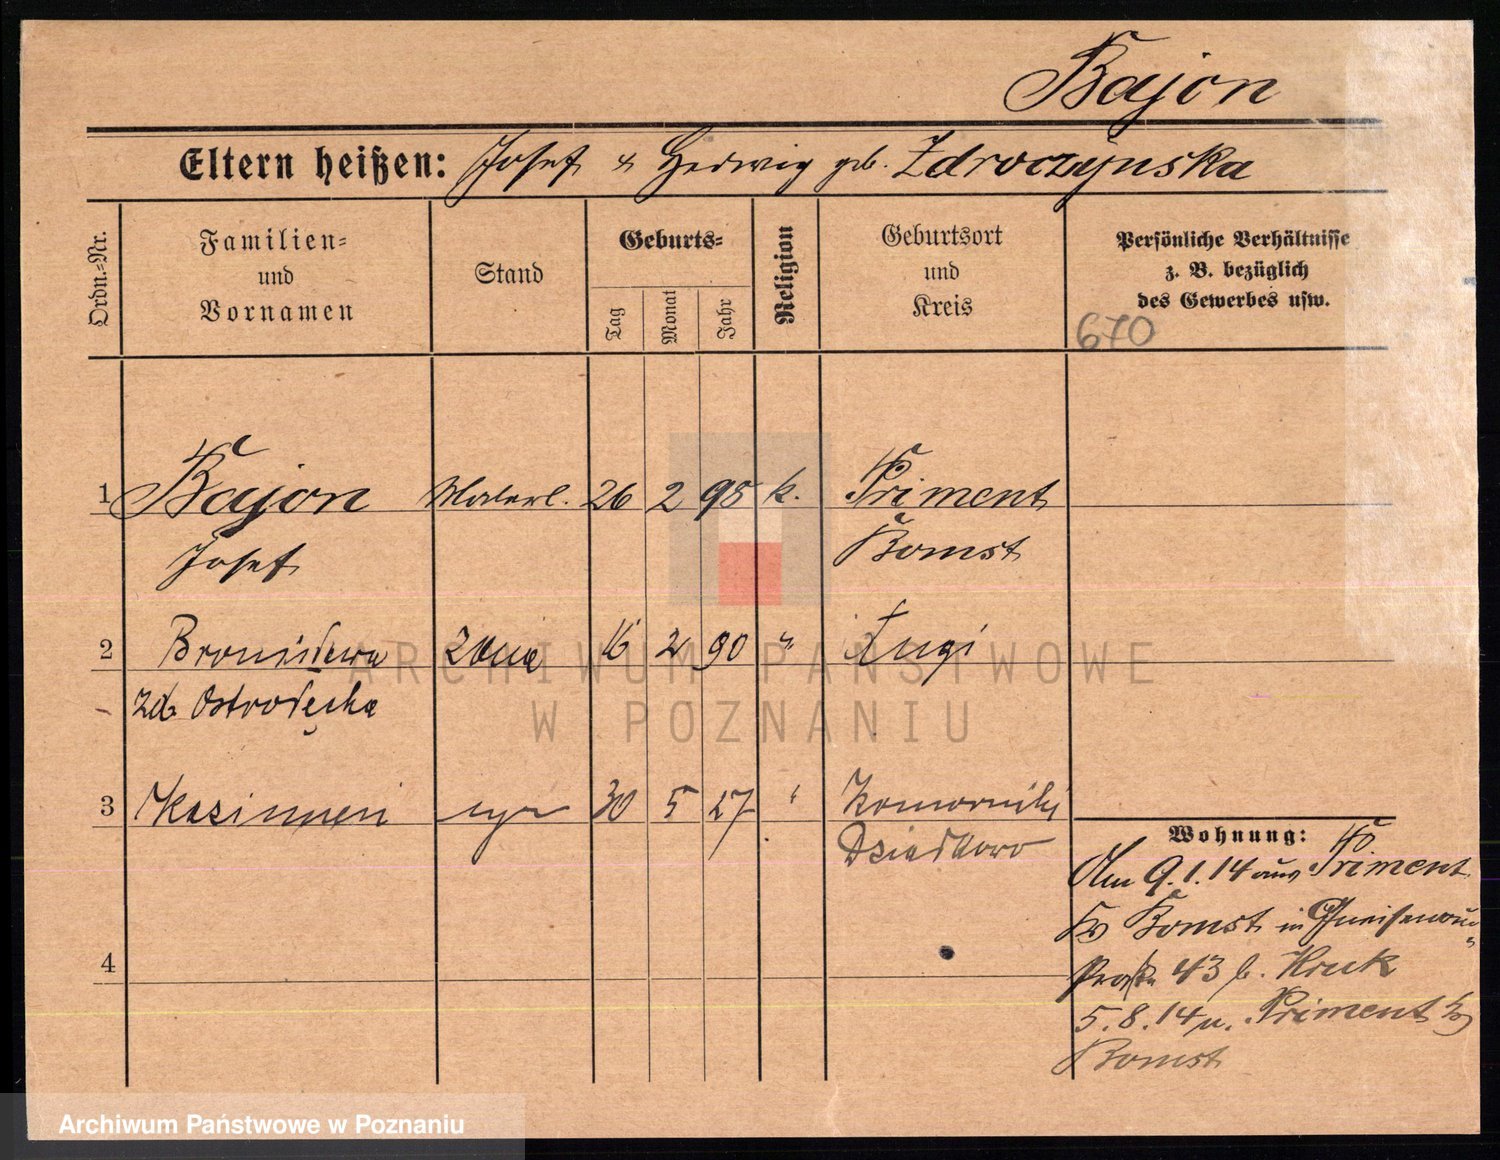 Bajon
Eltern heißen: Josef & Hedwig geb. Zdroczynska
Ordn.=Nr.
Familien=
und
Vornamen
Stand
Geburts=
Tag
Monat
Jahr
Religion
Geburtsort
und
Kreis
Persönliche Verhältnisse
z. B. bezüglich
des Gewerbes usw.
670
1 Bajon 26 2 95 k. Priment
Josef Bomst
2 Bronisława żona 16 2 90 " Ługi
zd.
3 Kazimierz syn 30 5 27 "
4
Wohnung:
Am 9.1.14 aus Priment
Kr Bomst in Gneisenau
straße 43 b. Kruk
5.8.14 n. Priment Kr
Bomst
ARCHIWUM PAŃSTWOWE
W POZNANIU
Archiwum Państwowe w Poznaniu